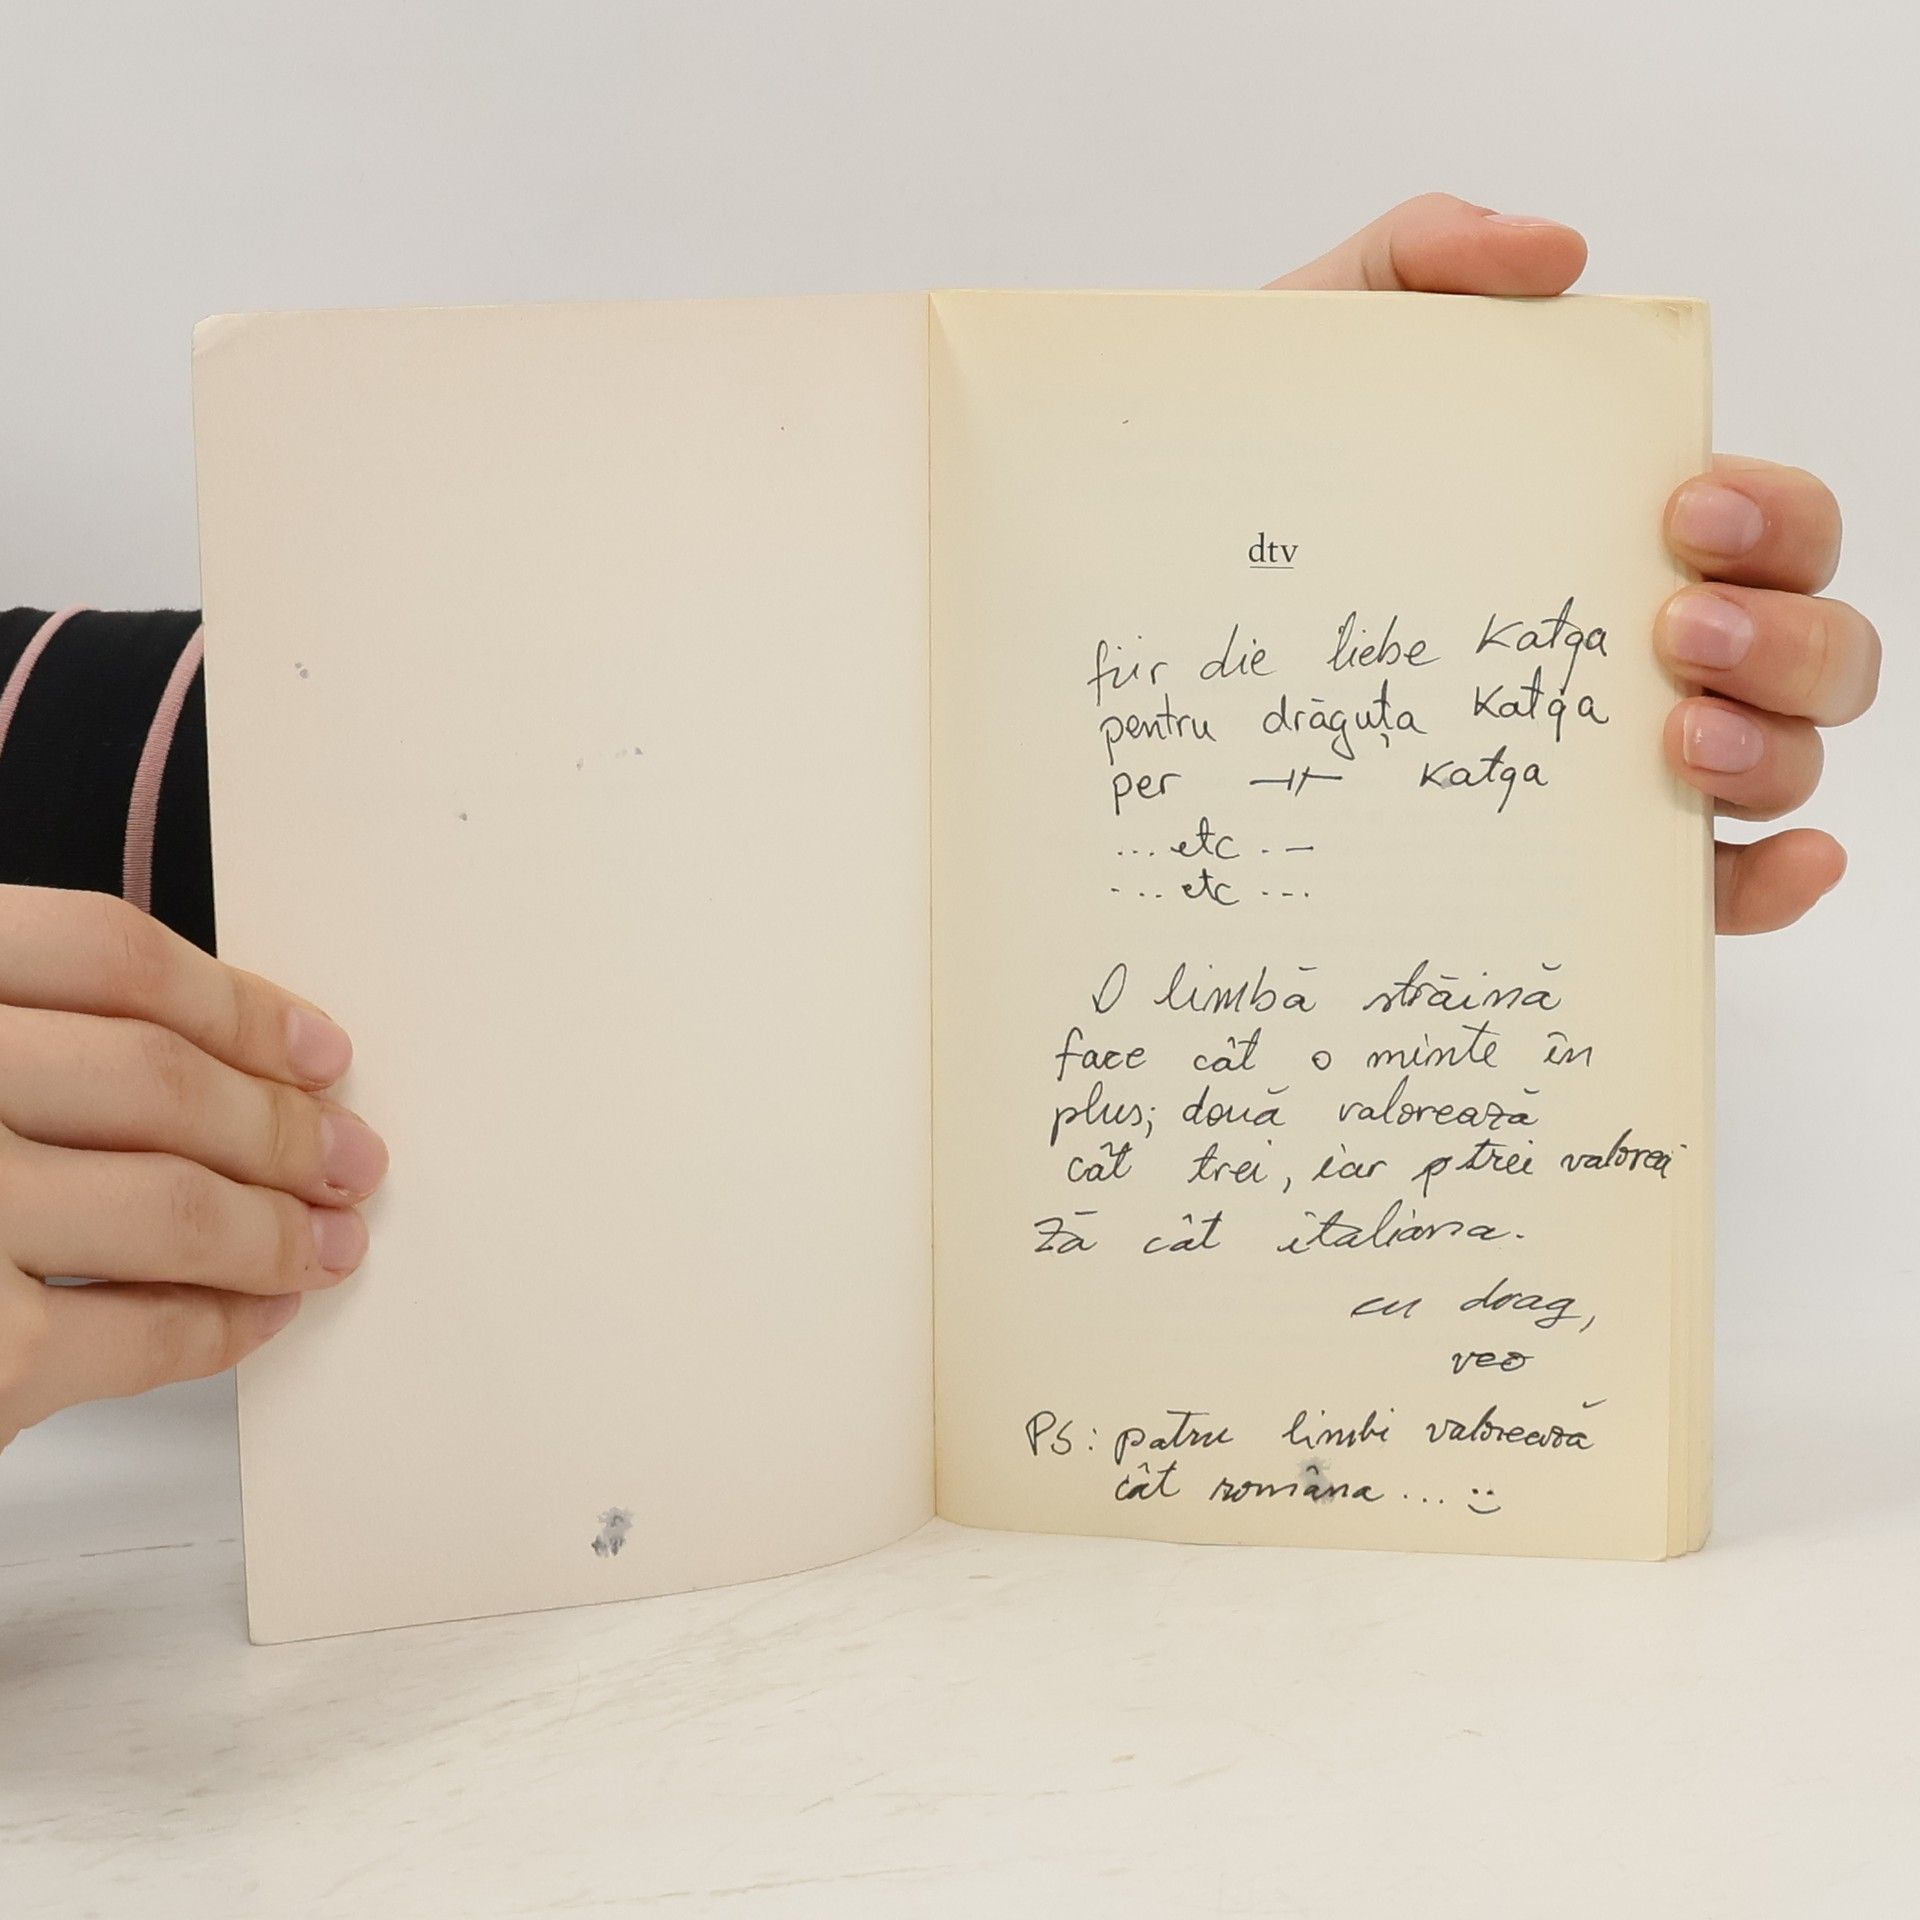 dtv
für die liebe Katja
pentru drăguța Katja
per —//— Katja
... etc . —
... etc ...
O limbă străină
face cât o minte în
plus; două valorează
cât trei, iar trei valorea
ză cât italiana.
cu drag,
veo
PS: patru limbi valorează
cât româna ... :)